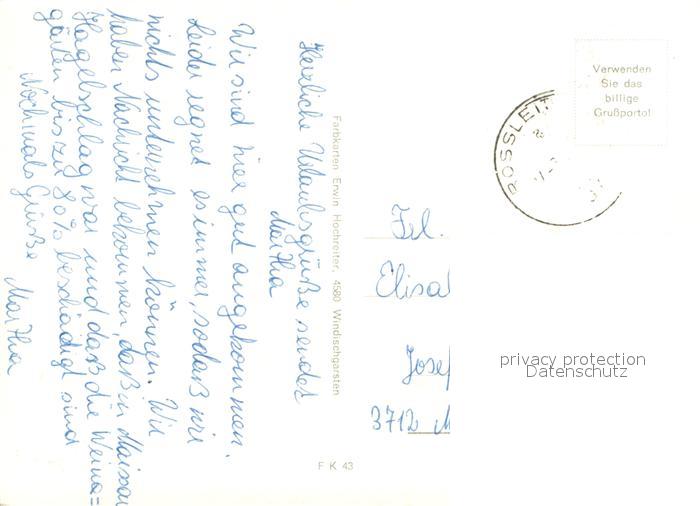 Herzliche Urlaubsgrüße sendet
Martha
Wir sind hier gut angekommen.
Leider regnet es immer, sodaß wir
nichts unternehmen können. Wir
haben Nachricht bekommen, daß in Maissau
Hagelschlag war und daß die Wein=
gärten bis zu 80% beschädigt sind
Nochmals Grüße Martha
Farbkarten Erwin Hochreiter, 4580 Windischgarsten
F K 43
Verwenden
Sie das
billige
Grußporto!
ROSSLEIT
Frl.
Elisa
Josef
3712 M
privacy protection
Datenschutz